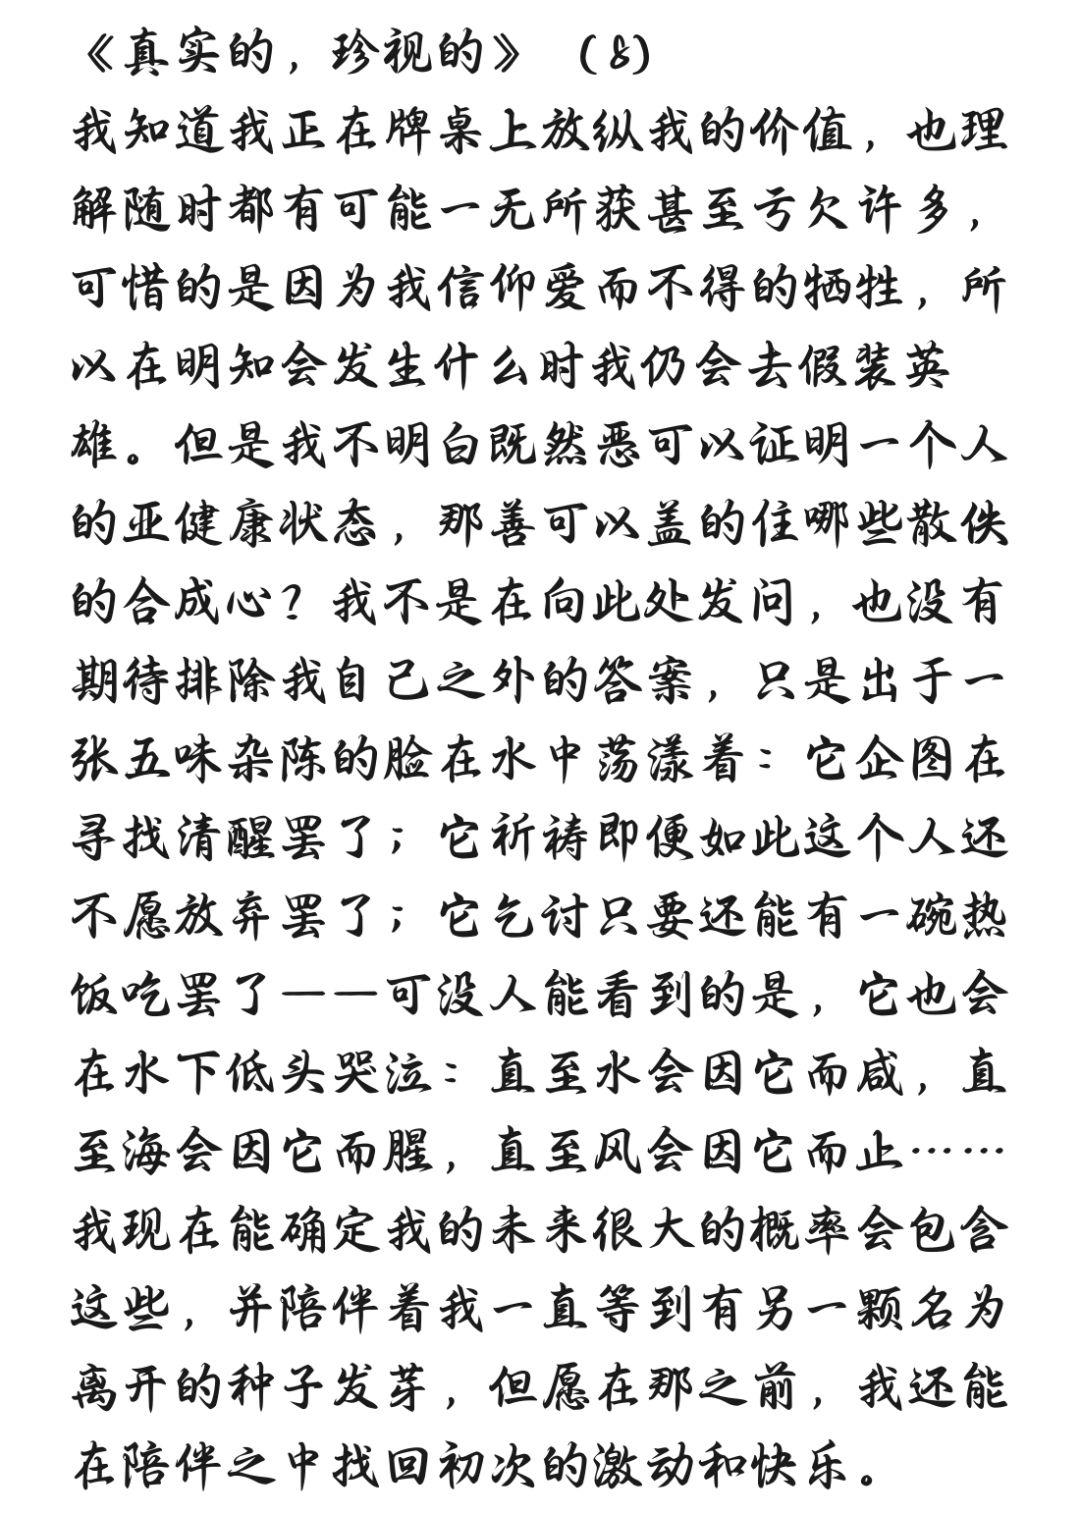 《真实的，珍视的》（8）
我知道我正在牌桌上放纵我的价值，也理
解随时都有可能一无所获甚至亏欠许多，
可惜的是因为我信仰爱而不得的牺牲，所
以在明知会发生什么时我仍会去假装英
雄。但是我不明白既然恶可以证明一个人
的亚健康状态，那善可以盖的住哪些散佚
的合成心？我不是在向此处发问，也没有
期待排除我自己之外的答案，只是出于一
张五味杂陈的脸在水中荡漾着：它企图在
寻找清醒罢了；它祈祷即便如此这个人还
不愿放弃罢了；它乞讨只要还能有一碗热
饭吃罢了——可没人能看到的是，它也会
在水下低头哭泣：直至水会因它而咸，直
至海会因它而腥，直至风会因它而止……
我现在能确定我的未来很大的概率会包含
这些，并陪伴着我一直等到有另一颗名为
离开的种子发芽，但愿在那之前，我还能
在陪伴之中找回初次的激动和快乐。